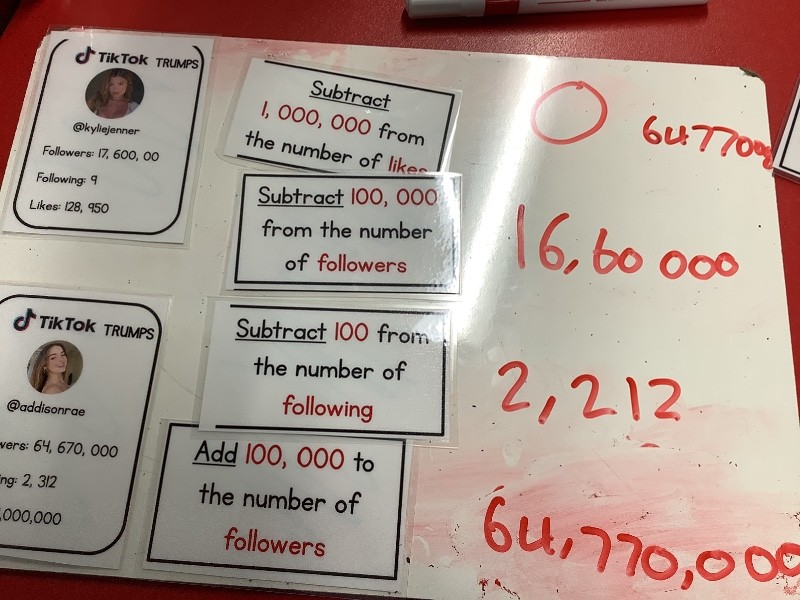 TikTok TRUMPS
@kyliejenner
Followers: 17, 600, 00
Following: 9
Likes: 128, 950
Subtract
1, 000, 000 from
the number of likes
Subtract 100, 000
from the number
of followers
Subtract 100 from
the number of
following
Add 100, 000 to
the number of
followers
TikTok TRUMPS
@addisonrae
wers: 64, 670, 000
ng: 2, 312
,000,000
O
16,60 000
2,212
64,770,000